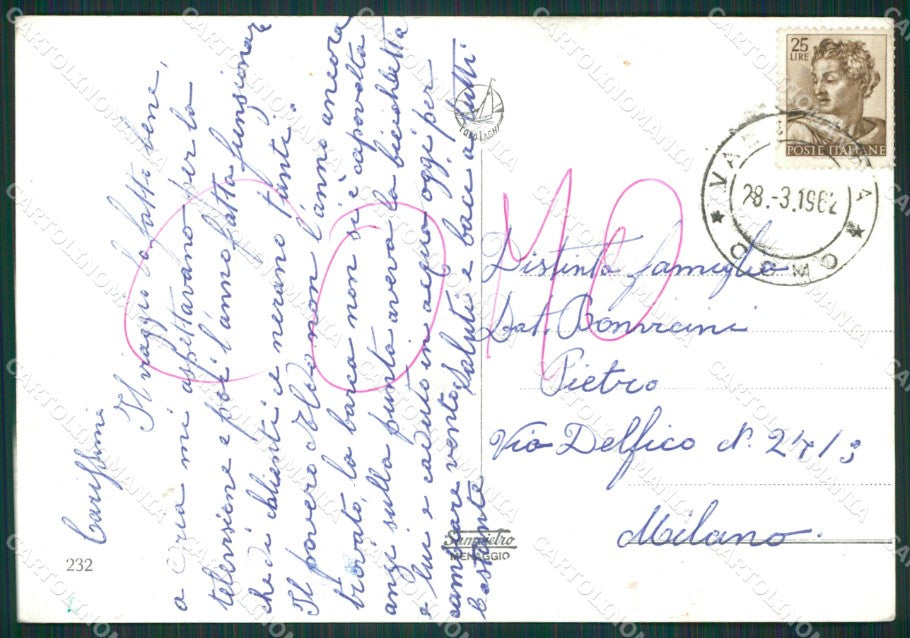 Carissimi
Il viaggio lo fatto bene,
a Oria mi aspettavano per la
televisione e poi l'anno fatta funzionar
che di clienti c'nerano tanti.
Il povero Aldo non l'anno ancora
trovato, la barca non si è capovolta
anzi sulla punta aveva la bicicletta
e lui è caduto in acqua oggi per
cercare vento. Saluti e baci a tutti
Costante
232
25
LIRE
POSTE ITALIANE
28.-3.1962
COMO
FOTO LAGHI
COMO
Distinta famiglia
Sat. Bonvicini
Pietro
Via Delfico N. 24/3
Milano
Sampietro
MENAGGIO
CARTOLINOMANIA